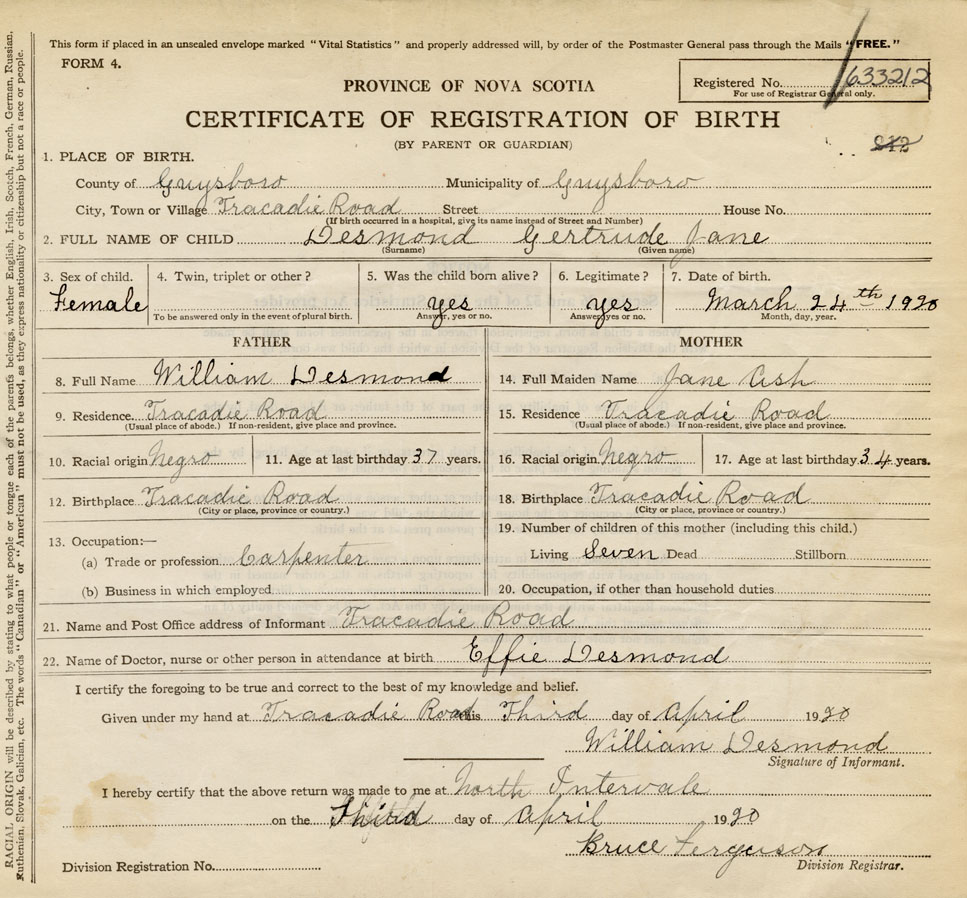 This form if placed in an unsealed envelope marked "Vital Statistics" and properly addressed will, by order of the Postmaster General pass through the Mails "FREE."
FORM 4.
Registered No. 633212
For use of Registrar General only.
PROVINCE OF NOVA SCOTIA
CERTIFICATE OF REGISTRATION OF BIRTH
(BY PARENT OR GUARDIAN)
212
1. PLACE OF BIRTH.
County of Guysboro Municipality of Guysboro
City, Town or Village Tracadie Road Street House No.
(If birth occurred in a hospital, give its name instead of Street and Number)
2. FULL NAME OF CHILD Desmond Gertrude Jane
(Surname) (Given name)
3. Sex of child. 4. Twin, triplet or other? 5. Was the child born alive? 6. Legitimate? 7. Date of birth.
Female yes yes March 24th 1920
To be answered only in the event of plural birth. Answer, yes or no. Answer, yes or no. Month, day, year.
FATHER MOTHER
8. Full Name William Desmond 14. Full Maiden Name Jane Ash
9. Residence. Tracadie Road 15. Residence Tracadie Road
(Usual place of abode.) If non-resident, give place and province. (Usual place of abode.) If non-resident, give place and province.
10. Racial origin Negro 11. Age at last birthday 37 years. 16. Racial origin Negro 17. Age at last birthday 34 years.
12. Birthplace Tracadie Road 18. Birthplace Tracadie Road
(City or place, province or country.) (City or place, province or country.)
13. Occupation:— 19. Number of children of this mother (including this child.)
(a) Trade or profession Carpenter Living Seven Dead Stillborn
(b) Business in which employed 20. Occupation, if other than household duties
21. Name and Post Office address of Informant Tracadie Road
22. Name of Doctor, nurse or other person in attendance at birth Effie Desmond
I certify the foregoing to be true and correct to the best of my knowledge and belief.
Given under my hand at Tracadie Road this Third day of April 1920
William Desmond
Signature of Informant.
I hereby certify that the above return was made to me at North Intervale
on the Third day of April 1920
Bruce Ferguson
Division Registration No. Division Registrar.
RACIAL ORIGIN will be described by stating to what people or tongue each of the parents belongs, whether English, Irish, Scotch, French, German, Russian,
Ruthenian, Slovak, Galician, etc. The words "Canadian" or "American" must not be used, as they express nationality or citizenship but not a race or people.